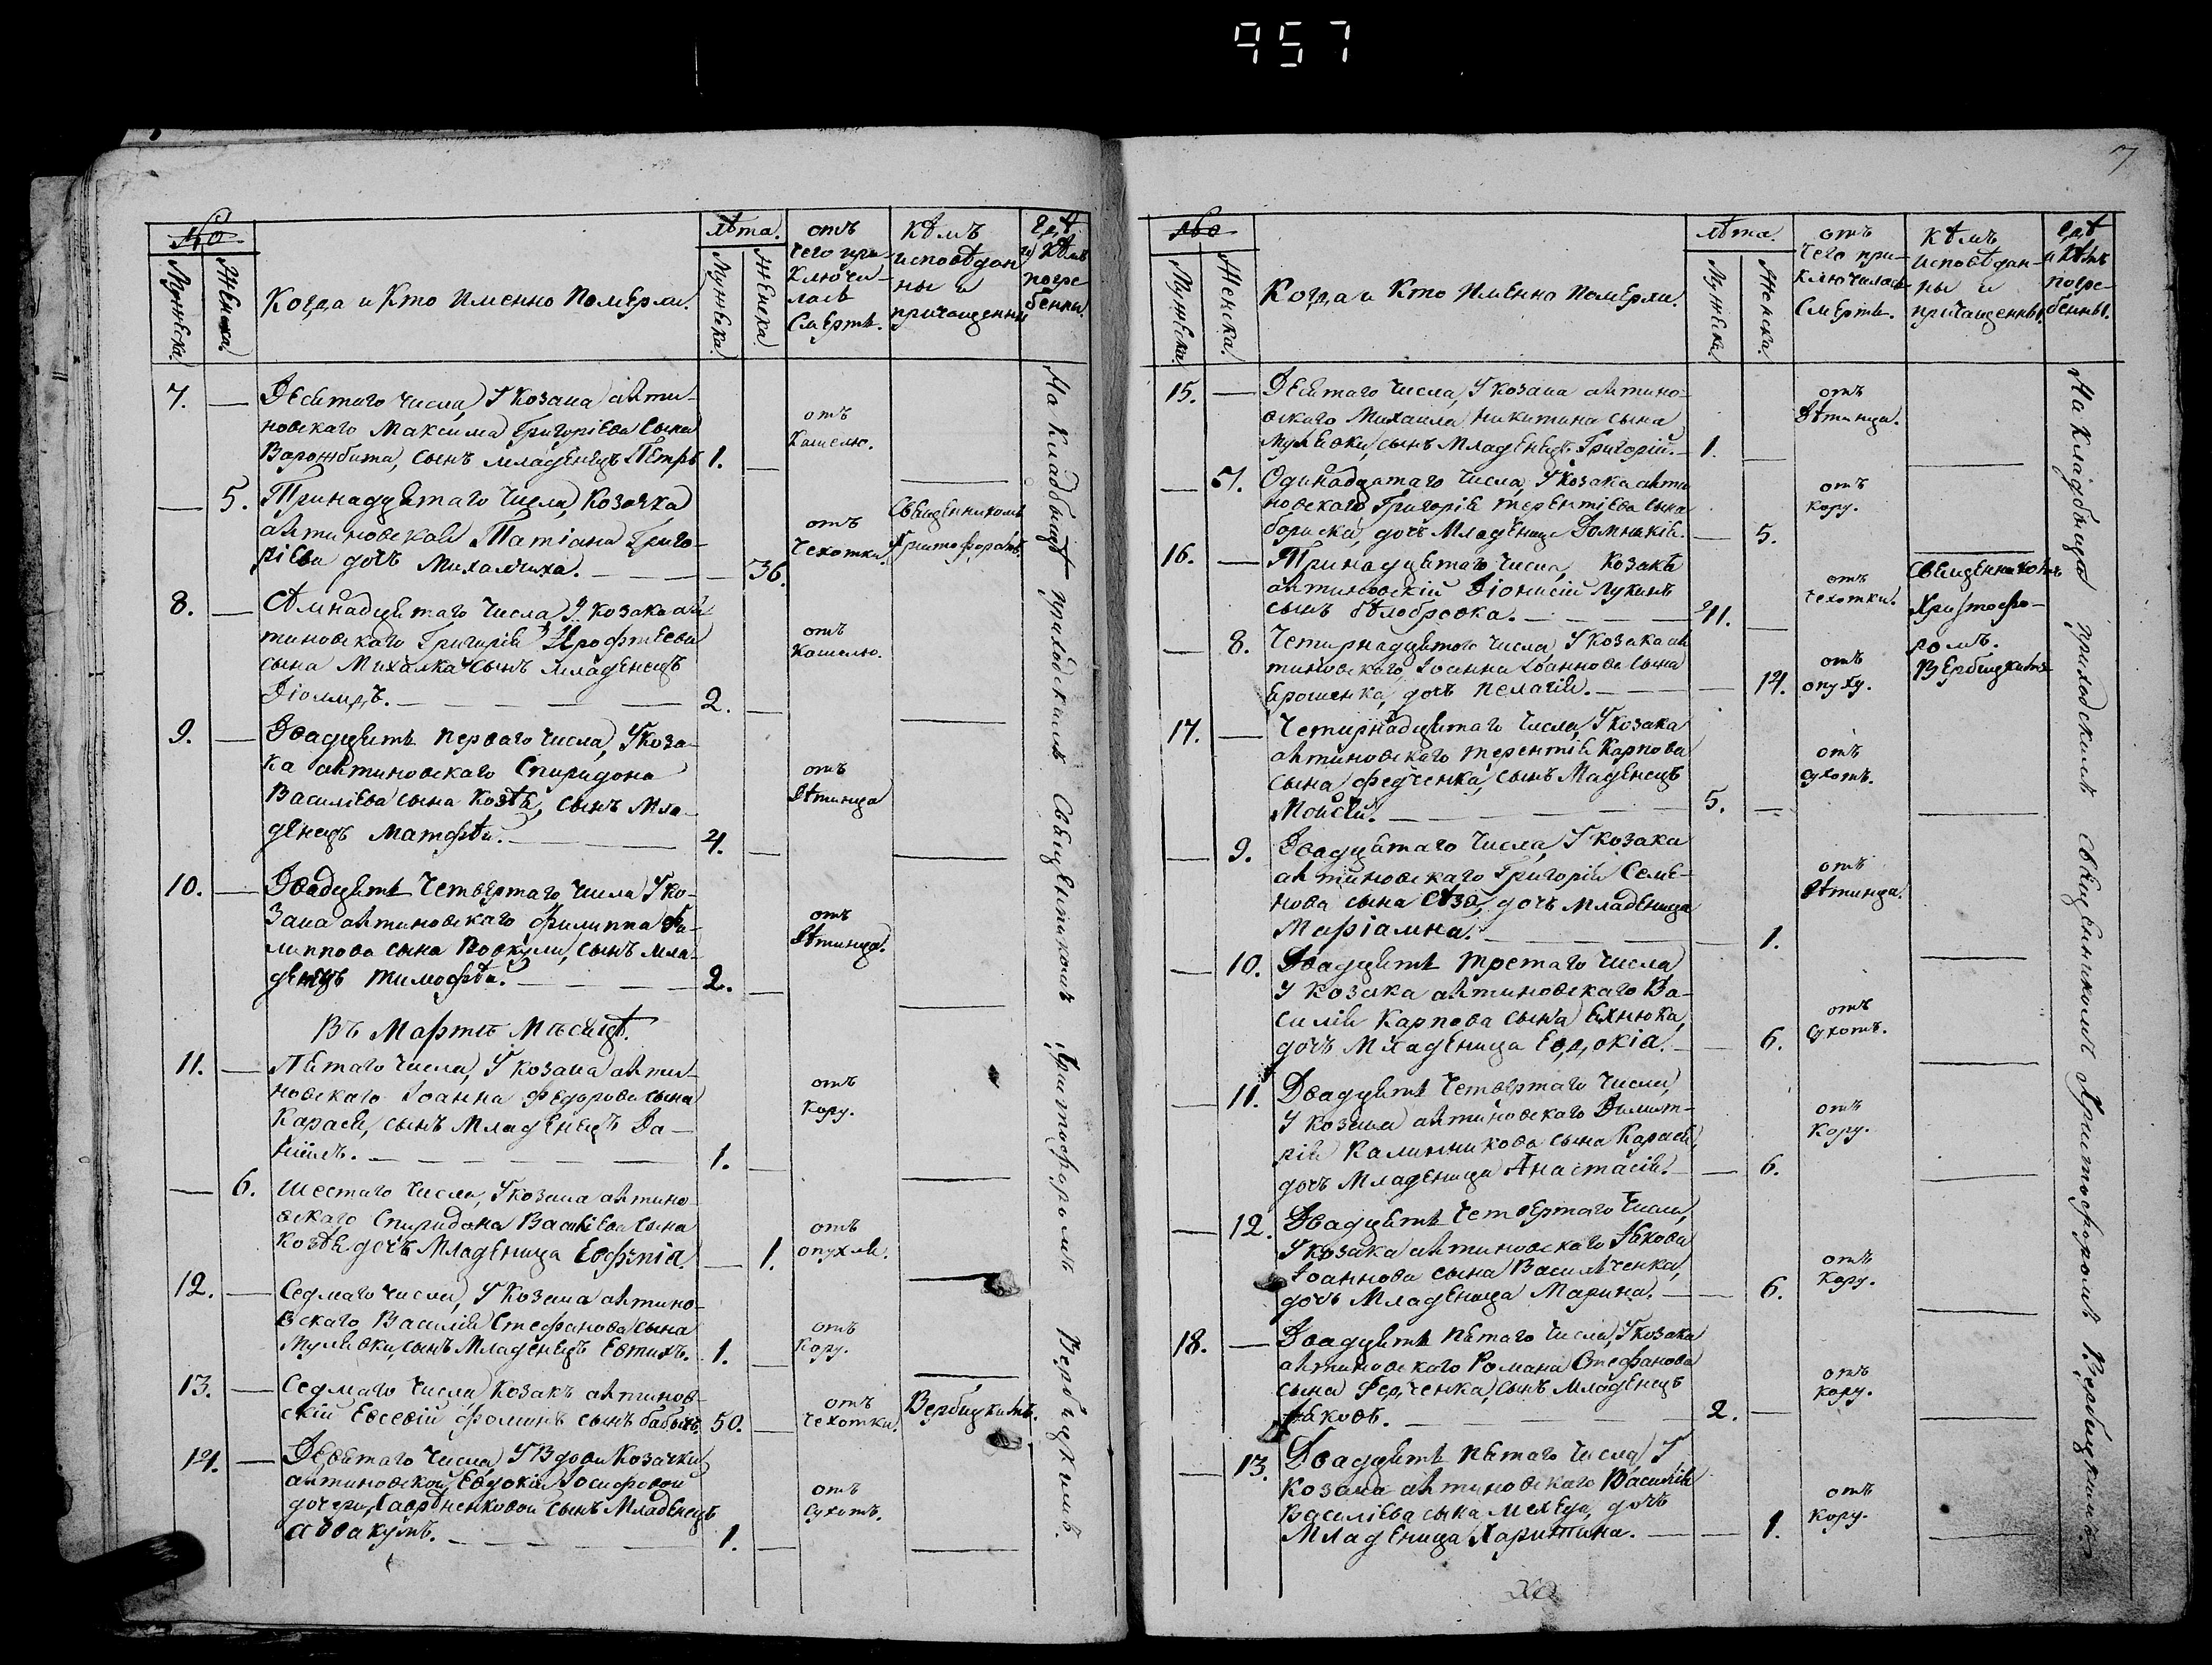 957
7
№
Мужеска.
Женска.
Когда и Кто Именно Померли.
Лѣта.
Мужеска.
Женска.
отъ
чего при-
ключи-
лась
Смерть.
Кѣмъ
исповѣдан
ны и
причащенны
Гдѣ
и Кѣмъ
погре-
бенны.
7. Десятаго Числа, У Козака ахти-
новскаго Максима Григоріева Сына
Ворожбита, сынъ младенецъ Петръ 1.
отъ
Кашелю.
5. Тринадцятаго Числа, Козачка
ахтиновская Татіана Григо-
ріева дочь Михалчиха. 36.
отъ
Чехотки.
Священникомъ
Христофоромъ
8. Сѣмнадцятаго Числа, У козака ах
тиновскаго Григорія Ерофтеева
сына Михалка сынъ младенецъ
Діомидъ. 2.
отъ
Кашелю.
9. Двадцять перваго Числа, У Коза-
ка ахтиновскаго Спиридона
Василіева сына Козѣя, сынъ Мла-
денецъ Матфѣй. 4.
отъ
Дѣтинца
10. Двадцять Четвертаго Числа У Ко-
зака ахтиновскаго Филиппа Фи-
липпова сына Повкули, сынъ мла-
денецъ Тимофѣй. 2.
отъ
Дѣтинца.
Въ Мартѣ Мѣсяцѣ.
11. Пятаго Числа, У Козака ахти-
новскаго Іоанна Федорова сына
Карася, сынъ Младенецъ Да-
ніилъ. 1.
отъ
Кору.
6. Шестаго Числа, У козака ахтино-
вскаго Спиридона Василіева Сына
Козѣя дочь Младеница Евфимія 1.
отъ
опухли.
12. Седмаго Числа, У Козака ахтино-
вскаго Василія Стефанова сына
Мулявки, сынъ Младенецъ Евтихъ. 1.
отъ
Кору.
13. Седмаго Числа Козакъ ахтинов-
скій Евсевій Фоминъ сынъ бабичъ. 50.
отъ
Чехотки.
Вербицкимъ.
14. Девятаго Числа У Вдови Козачки
ахтиновской Евдокіи Іосифовой
дочери, Лавриненковой сынъ Младенецъ
аввакумъ. 1.
отъ
Сухотъ.
На Кладбищѣ приходскимъ Священникомъ Христофоромъ Вербицкимъ.
№
Мужеска.
Женска.
Когда и Кто Именно Померли.
Лѣта.
Мужеска.
Женска.
отъ
Чего при-
ключилась
Смерть.
Кѣмъ
Исповѣдан-
ны и
причащенны.
Гдѣ
и Кѣмъ
погре-
бенны.
15. Десятаго Числа, У козака ахтино-
вскаго Михаила Никитина сына
Мулявки, сынъ Младенецъ Григорій. 1.
отъ
Дѣтинца.
7. Одинадцятаго Числа, У козака ахти
новскаго Григорія Терентіева сына
бориски, дочь Младеница Домникія. 5.
отъ
Кору.
16. Тринадцятаго Числа, Козакъ
ахтиновскій Діонисій Лукинъ
сынъ Бѣлобровка.
отъ
Чехотки.
Священикомъ
Христофо-
ромъ.
Вербицкимъ
8. Четирнадцятаго Числа, У Козака ах
тиновскаго Іоанна Іоаннова сына
Ярошенка, дочь Пелагія. 14.
отъ
опуху.
17. Четирнадцятаго Числа, У Козака
ахтиновскаго Терентія Карпова
сына Федченка, сынъ Маденецъ
Мойсей. 5.
отъ
Сухотъ.
9. Двадцятаго Числа, У Козака
ахтиновскаго Григорія Семе-
нова сына Сѣза, дочь Младеница
Маріамна. 1.
отъ
Дѣтинца.
10. Двадцять Третаго Числа
У Козака ахтиновскаго Ва-
силія Карпова сына Яхнюка,
дочь Младеница Евдокіа. 6.
отъ
Сухотъ.
11. Двадцять Четвертаго Числа,
У Козака ахтиновскаго Димит-
рія Калинникова сына Карася,
дочь Младеница Анастасія. 6.
отъ
Кору.
12. Двадцять Четвертаго Числа,
У Козака ахтиновскаго Якова
Іоаннова сына Василченка,
дочь Младеница Марина. 6.
отъ
Кору.
18. Двадцять Пятаго Числа, У козака
ахтиновскаго Романа Стефанова
сына Федченка, сынъ Младенецъ
Яковъ. 2.
отъ
Кору.
13. Двадцять Пятаго Числа, У
Козака ахтиновскаго Василія
Василіева сына Мехеда, дочь
Младеница Харитина. 1.
отъ
Кору.
На Кладбищѣ приходскимъ священникомъ Христофоромъ Вербицкимъ